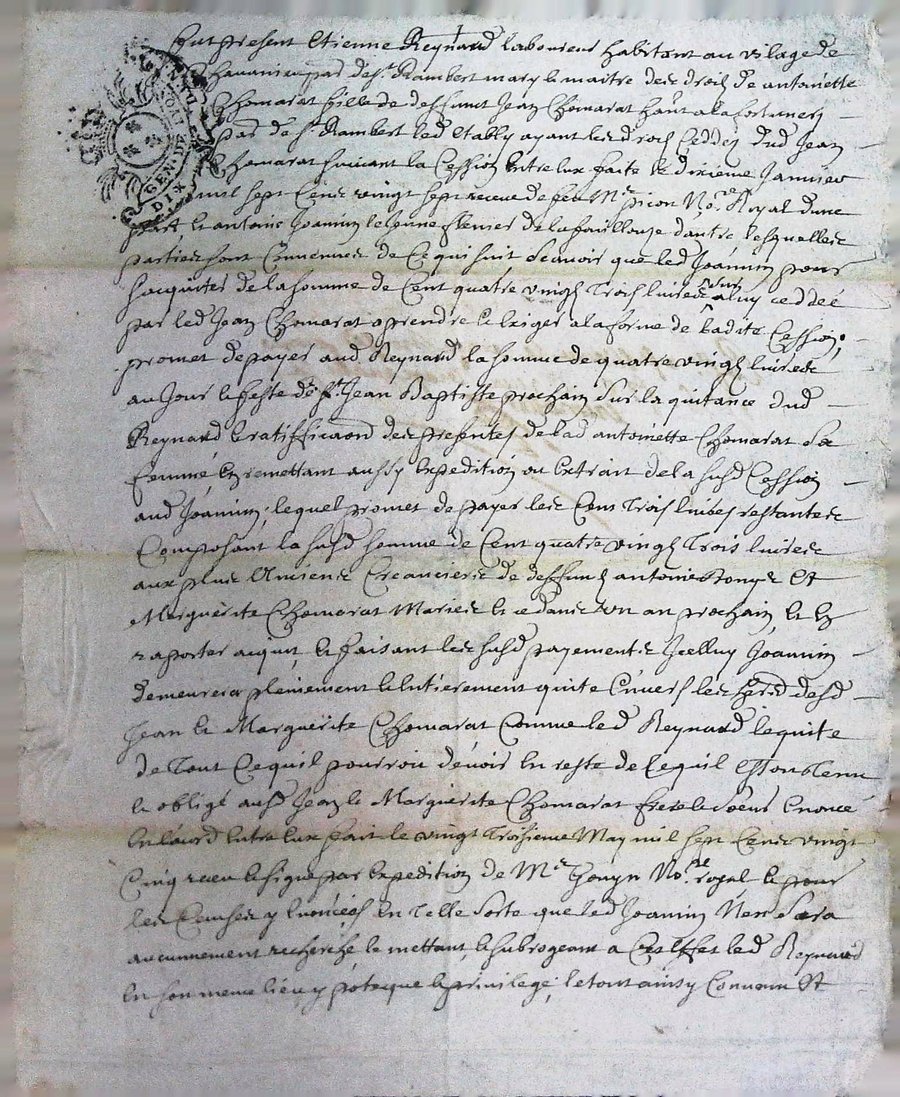 fut present Etienne Reynaud laboureur habitant au vilage de
par de St Rambert mary le maitre des droits de antoinette
Chomarat fille de deffunct Jean Chomarat
par de St Rambert led etably ayant les droits ceddés dud Jean
Chomarat suivant la Cession entre eux faite le dixieme Janvier
mil sept cens vingt sept receue de feu Me picon No.re Royal dune
part, et antoine Joannin le Jeune fermier de la fouillouze dautre lesquelles
parties sont convenues de ce qui suit scavoir que led Joannin pour
sacquiter de la somme de Cent quatre vingt Trois livres sur aluy ceddée
par led Jean Chomarat a prendre et exiger a la forme de ladite Cession,
promet de payer aud Reynaud la somme de quatre vingt livres
au Jour et feste de St Jean Baptiste prochain sur la quitance dud
Reynaud et ratiffication des presentes de lad antoinette Chomarat sa
femme, en remettant aussy expedition ou extrait de la susd Cession
aud Joannin, lequel promet de payer les Cent Trois livres restantes
Composant la susd somme de Cent quatre vingt Trois livres
aux plus anciens Creanciers de deffunct antoine et
Marguerite Chomarat Maries et ce dans un an prochain, et en
raporter aquit, et faisant les susd payements Icelluy Joannin
demeurera pleinement et entierement quite envers les desd
Jean et Marguerite Chomarat comme led Reynaud le quite
de Tout ce quil pourroit devoir en reste de ce quil est ou tenu
et obligé ausd Jean et Marguerite Chomarat frere et soeur enoncé
en lacord entre eux fait le vingt Troisieme May mil sept cens vingt
Cinq receu et signé par expedition de Me No.re royal et pour
les Causes y enoncées en Telle sorte que led Joannin nen sera
aucunnement recherché, le mettant, et subrogeant a Cest effet led Reynaud
en son meme lieu, ypoteque et privilege, le tout ainsy Convenu et
GEN. DE
DIX